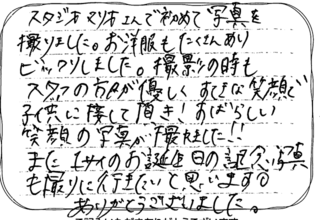 スタジオマリオさんで初めて写真を
撮りました。お洋服もたくさんあり
ビックリしました。撮影の時も
スタッフの方が優しくすてきな笑顔で
子供に接して頂き！すばらしい
笑顔の写真が撮れました!!
また1才のお誕生日の記念写真
も撮りに行きたいと思います
ありがとうございました。